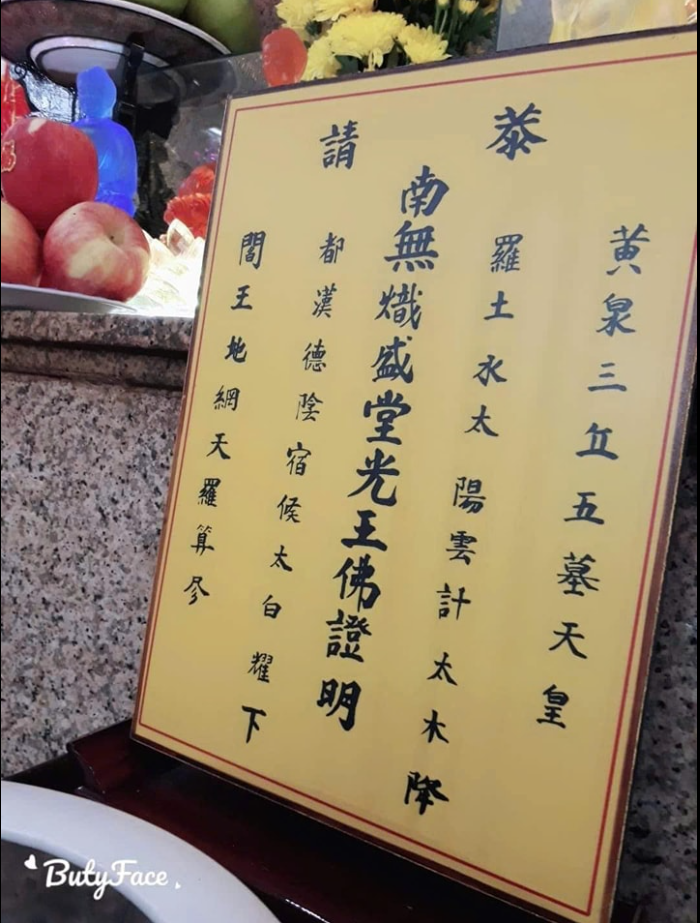 恭請
黃泉三丘五墓天皇
羅土水太陽雲計太木降
南無熾盛堂光王佛證明
都漢德陰宿候太白耀下
閻王地網天羅算
ButyFace